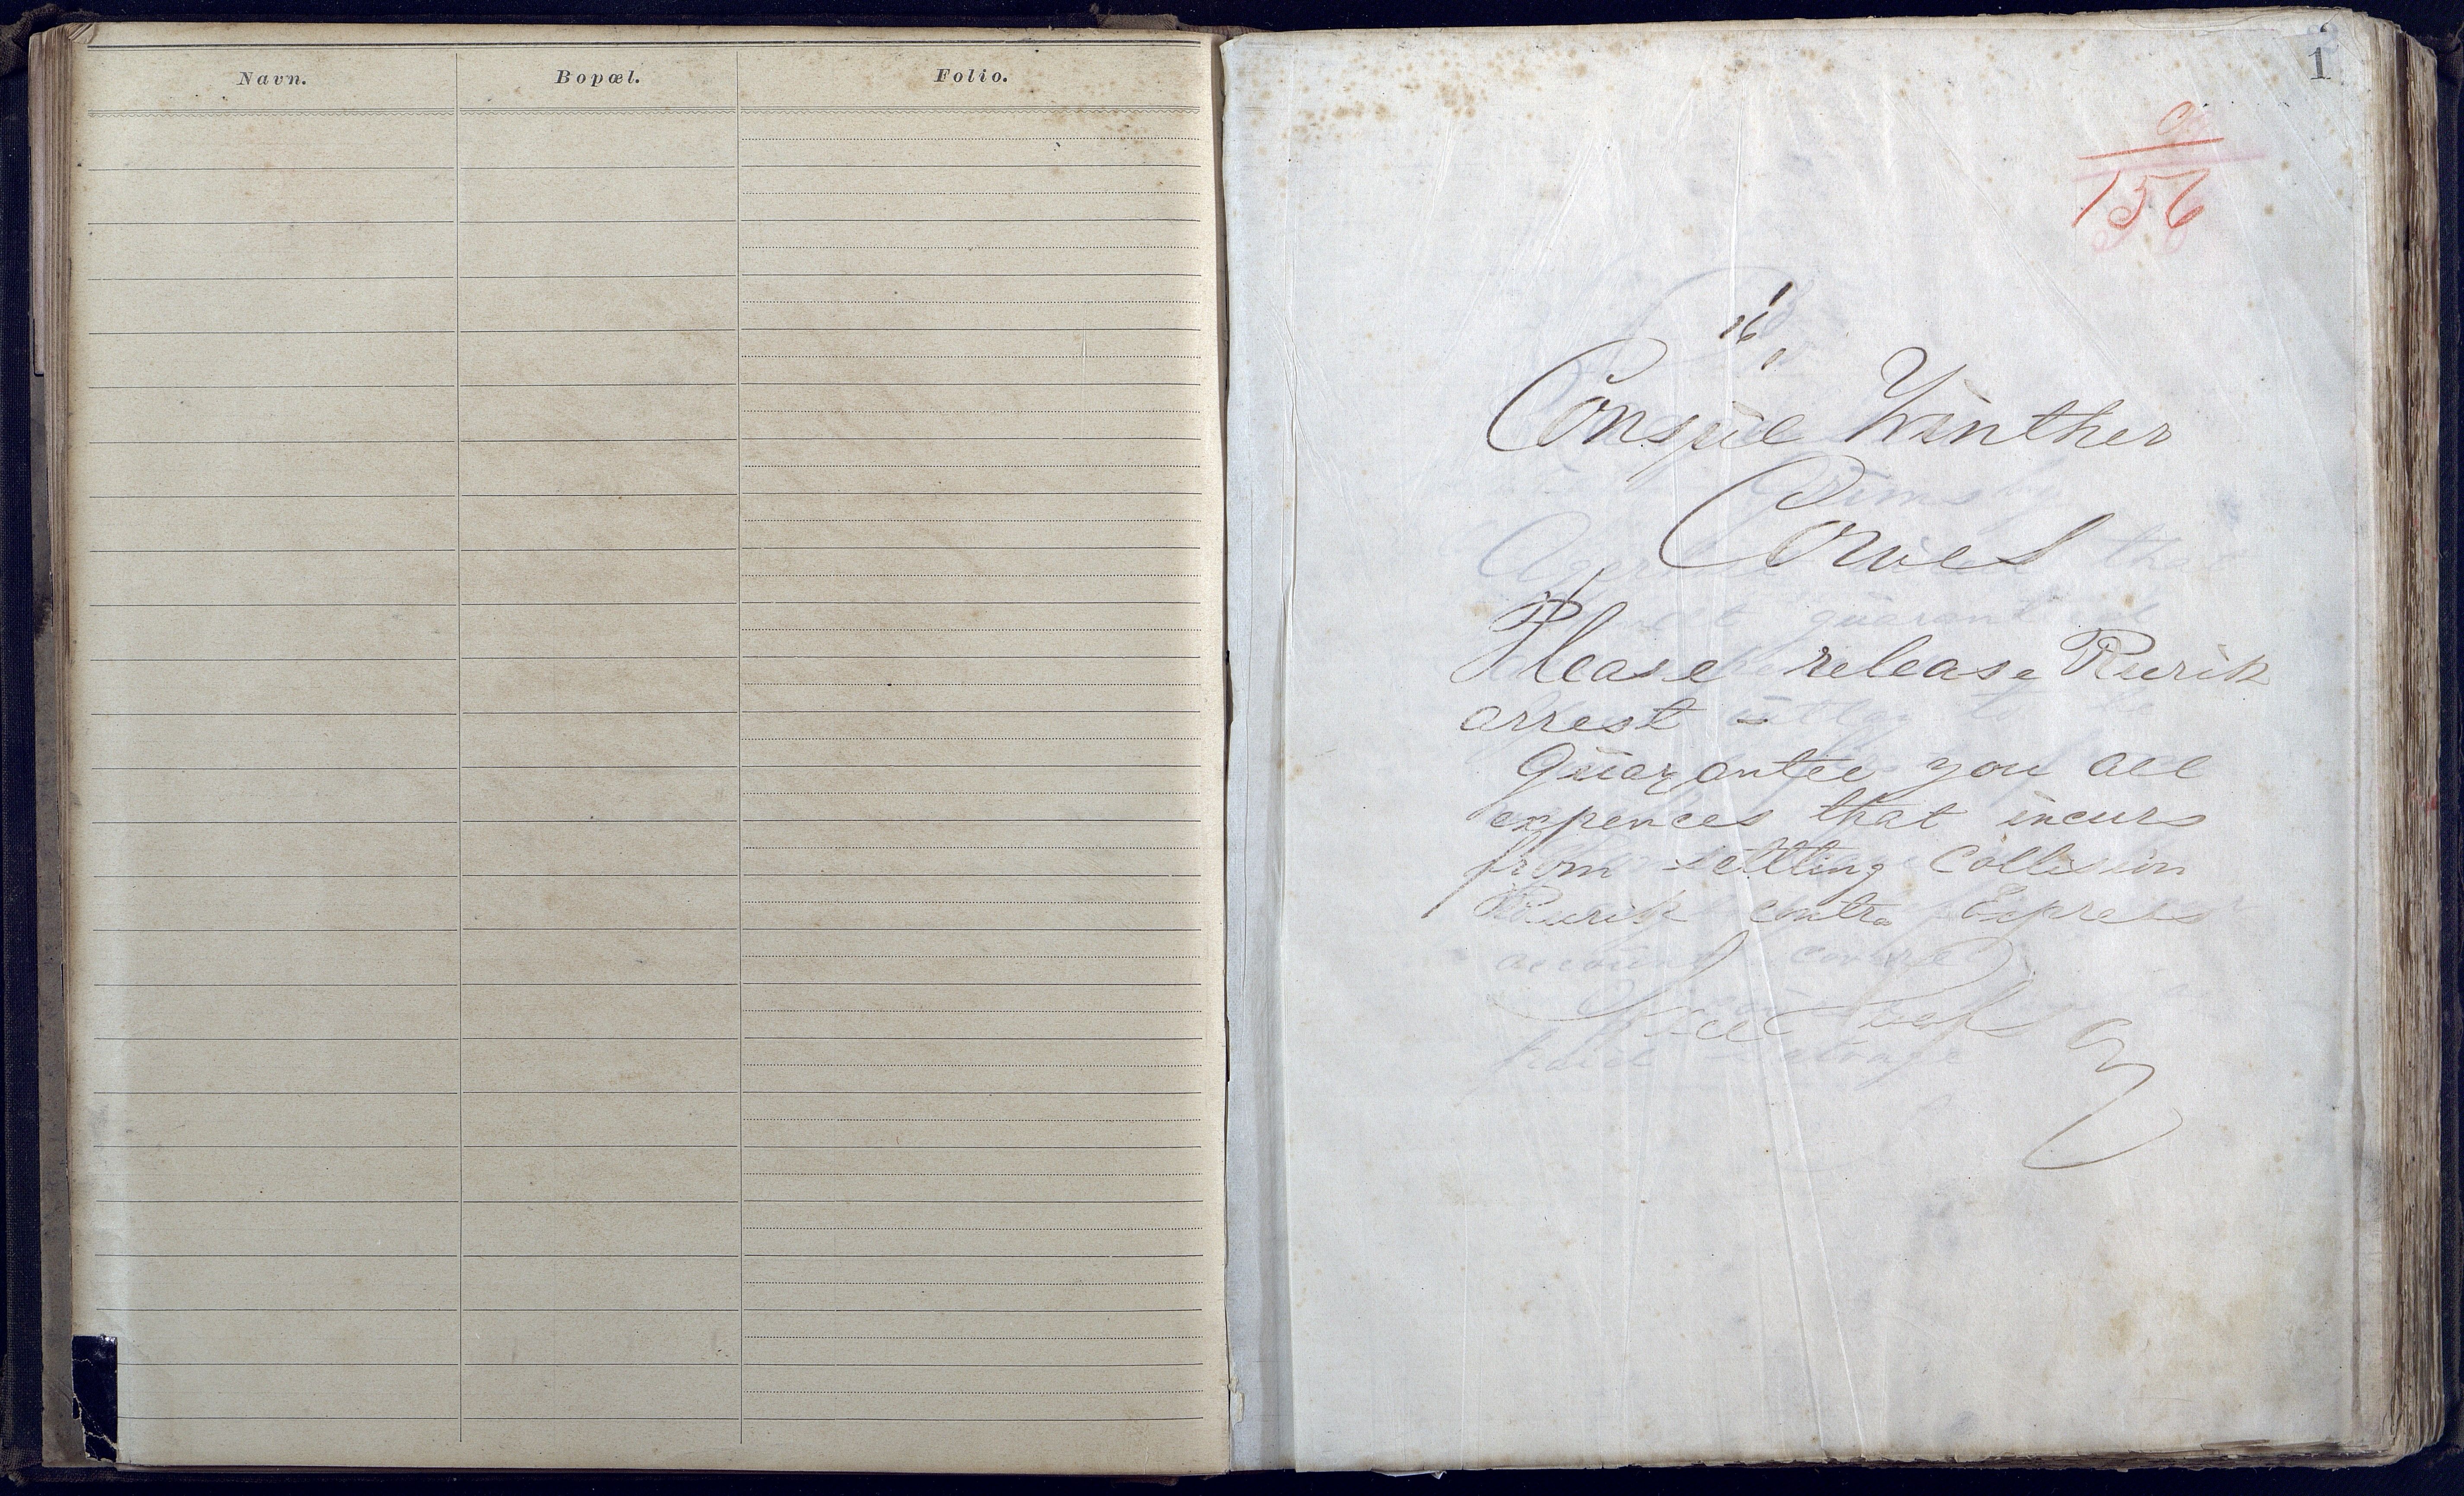 Navn. Bopæl. Folio.
1
156
16/1
Consul Winther
Cowes
Please release Rurik
arrest
Guarantee you all
expences that incurs
from settling Collision
Rurik contra Express